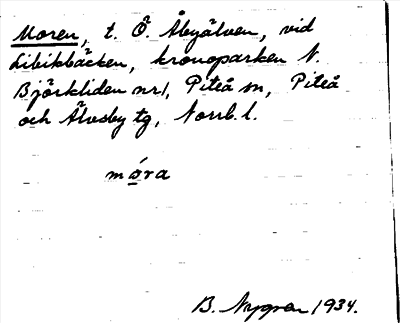 Moren, t. Ö. Åbyälven, vid
Libikbäcken, kronoparken N.
Björkliden nr 1, Piteå sn, Piteå
och Älvsby tg, Norrb. l.
móra
B. Nygren 1934.